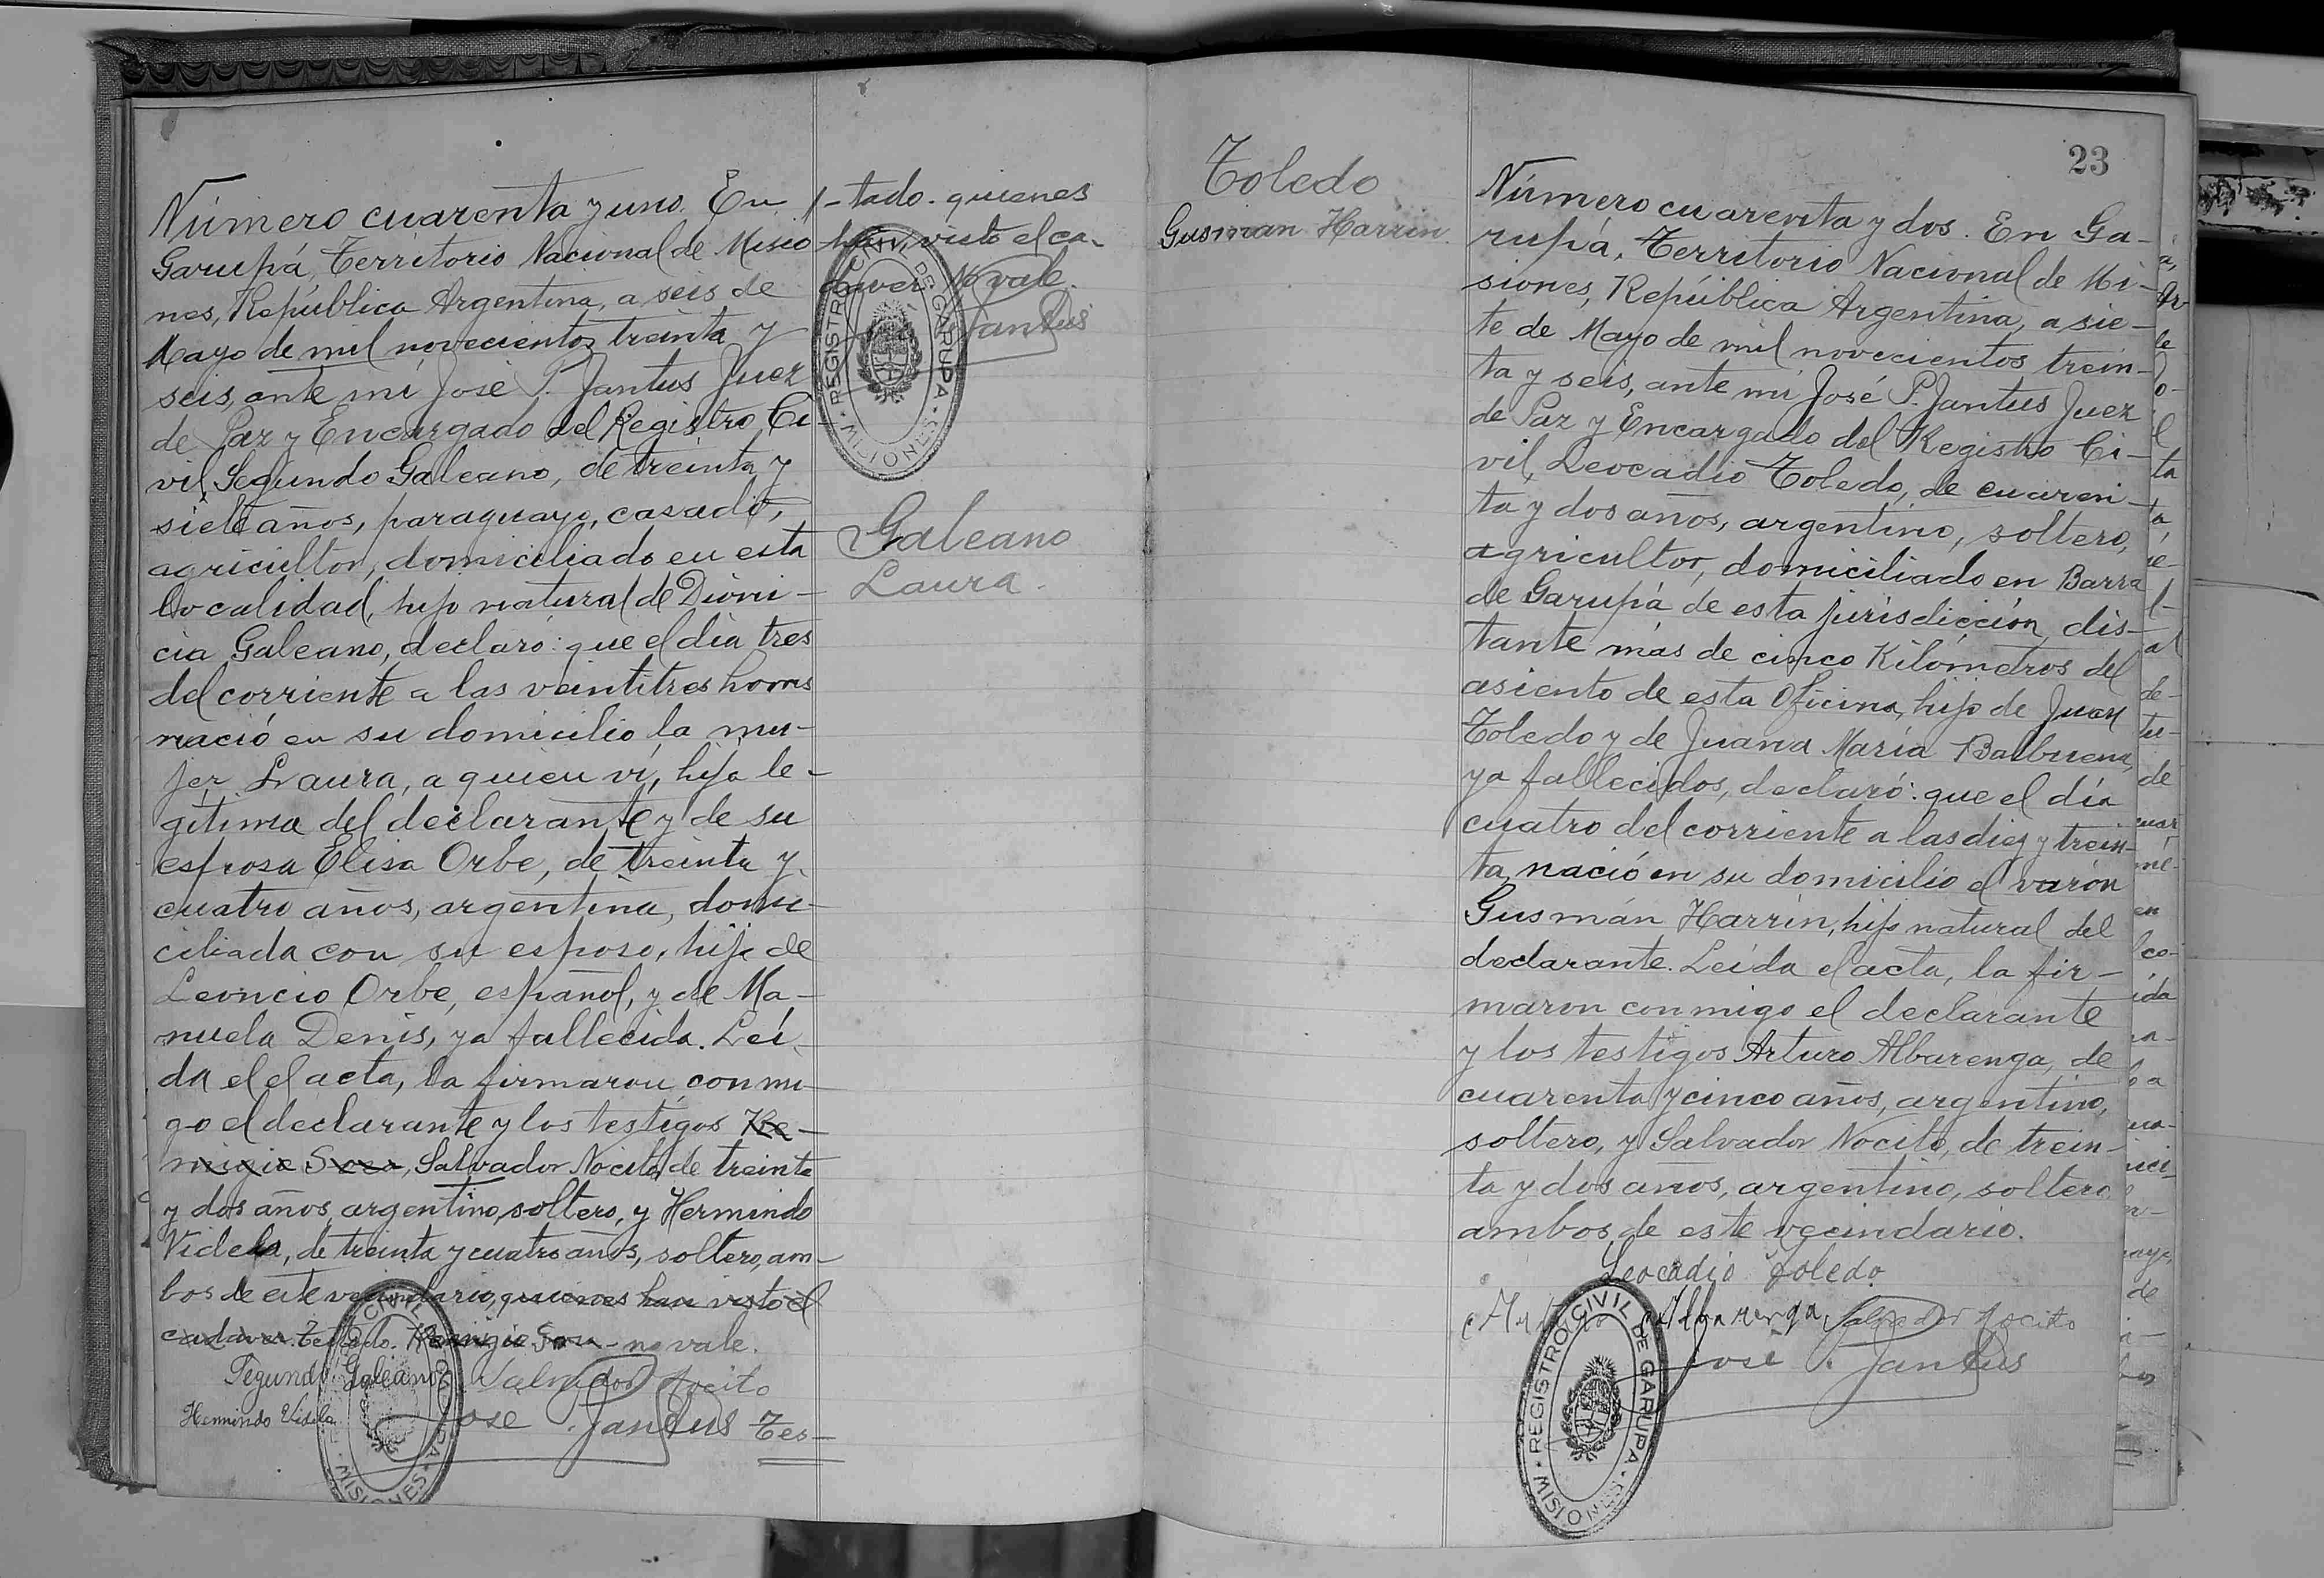 Número cuarenta y uno. En
Garupá, Territorio Nacional de Misio
nes, República Argentina, a seis de
Mayo de mil novecientos treinta y
seis, ante mí José P. Jantus Juez
de Paz y Encargado del Registro Ci-
vil, Segundo Galeano, de treinta y
siete años, paraguayo, casado,
agricultor, domiciliado en esta
localidad, hijo natural de Dioni-
cia Galeano, declaró: que el día tres
del corriente a las veintitres horas
nació en su domicilio la mu-
jer Laura, a quien ví, hija le-
gítima del declarante y de su
esposa Elisa Orbe, de treinta y
cuatro años, argentina, domi-
ciliada con su esposo, hija de
Leoncio Orbe, español, y de Ma-
nuela Denis, ya fallecida. Leí-
da el el acta, la firmaron conmi-
go el declarante y los testigos Re-
migio Sosa, Salvador Nocito, de treinta
y dos años, argentino, soltero, y Hermindo
Videla, de treinta y cuatro años, soltero, am-
bos de este vecindario, quienes han visto el
cadaver. Testado. Remigio Sosa - no vale.
Segundo Galeano Salvador Nocito
Hermindo Videla Jose P. Jantus Tes-
/-tado. quienes
han visto el ca-
daver No vale.
Jantus
REGISTRO CIVIL DE GARUPA · MISIONES ·
Galeano
Laura.
REGISTRO CIVIL DE GARUPA · MISIONES ·
Toledo
Gusman Harrin.
23
Número cuarenta y dos. En Ga-
rupá, Territorio Nacional de Mi-
siones, República Argentina, a sie-
te de Mayo de mil novecientos trein-
ta y seis, ante mí José P. Jantus Juez
de Paz y Encargado del Registro Ci-
vil, Leocadio Toledo, de cuaren-
ta y dos años, argentino, soltero,
agricultor, domiciliado en Barra
de Garupá de esta jurisdicción, dis-
tante más de cinco Kilómetros del
asiento de esta Oficina, hijo de Juan
Toledo y de Juana María Balbuena,
ya fallecidos, declaró: que el día
cuatro del corriente a las diez y trein-
ta, nació en su domicilio el varón
Gusmán Harrin, hijo natural del
declarante. Leída el acta, la fir-
maron conmigo el declarante
y los testigos Arturo Albarenga, de
cuarenta y cinco años, argentino,
soltero, y Salvador Nocito, de trein-
ta y dos años, argentino, soltero
ambos de este vecindario.
Leocadio Toledo
Arturo Albarenga, Salvador Nocito
Jose P. Jantus
REGISTRO CIVIL DE GARUPA · MISIONES ·